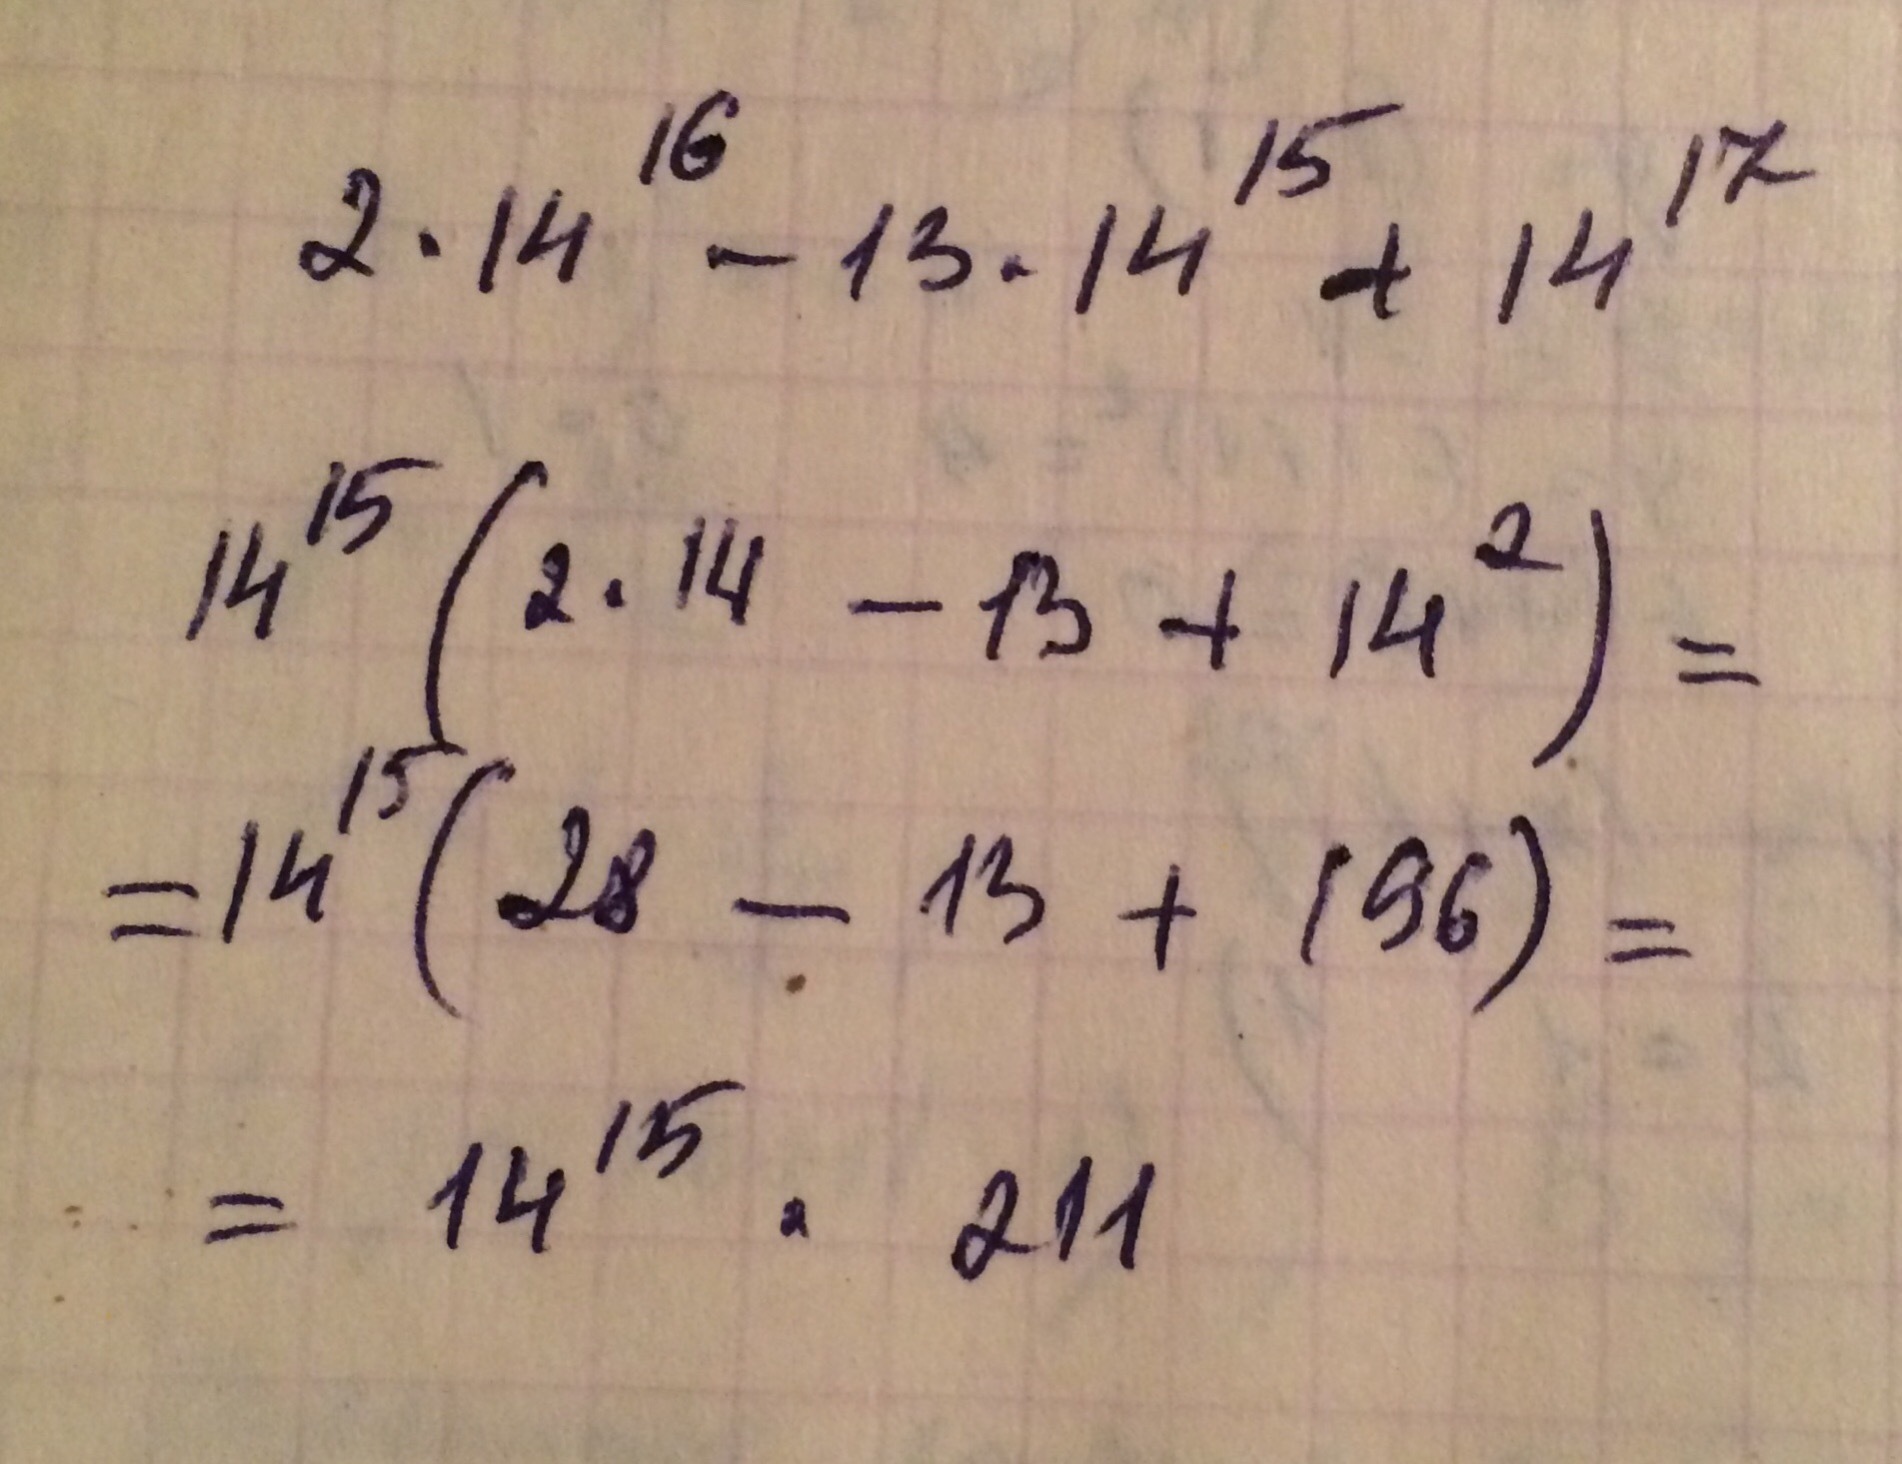 2·14¹⁶ − 13·14¹⁵ + 14¹⁷
14¹⁵(2·14 − 13 + 14²) =
= 14¹⁵(28 − 13 + 196) =
= 14¹⁵ · 211